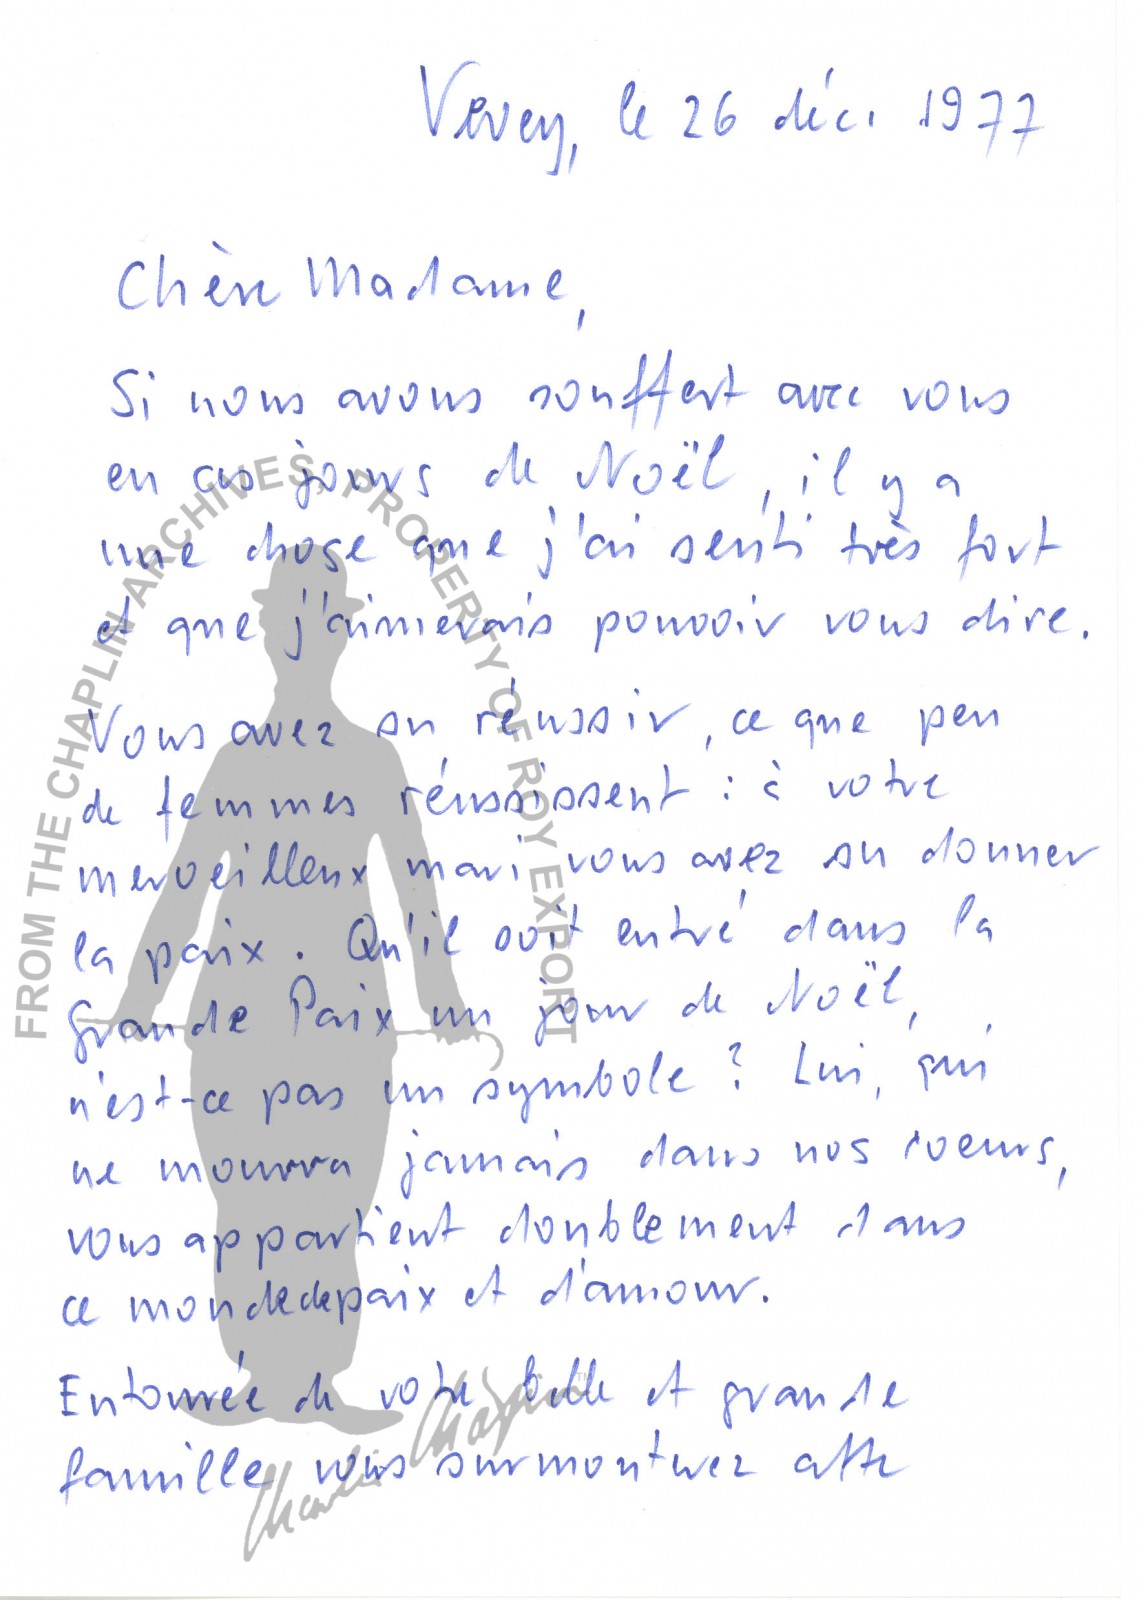 Vevey, le 26 déc. 1977
Chère Madame,
Si nous avons souffert avec vous
en ces jours de Noël, il y a
une chose que j'ai senti très fort
et que j'aimerais pouvoir vous dire.
Vous avez su réussir, ce que peu
de femmes réussissent : à votre
merveilleux mari vous avez su donner
la paix. Qu'il soit entré dans la
Grande Paix un jour de Noël,
n'est-ce pas un symbole ? Lui, qui
ne mourra jamais dans nos coeurs,
vous appartient doublement dans
ce monde de paix et d'amour.
Entourée de votre belle et grande
famille vous surmonterez cette
FROM THE CHAPLIN ARCHIVES, PROPERTY OF ROY EXPORT
Charlie Chaplin™